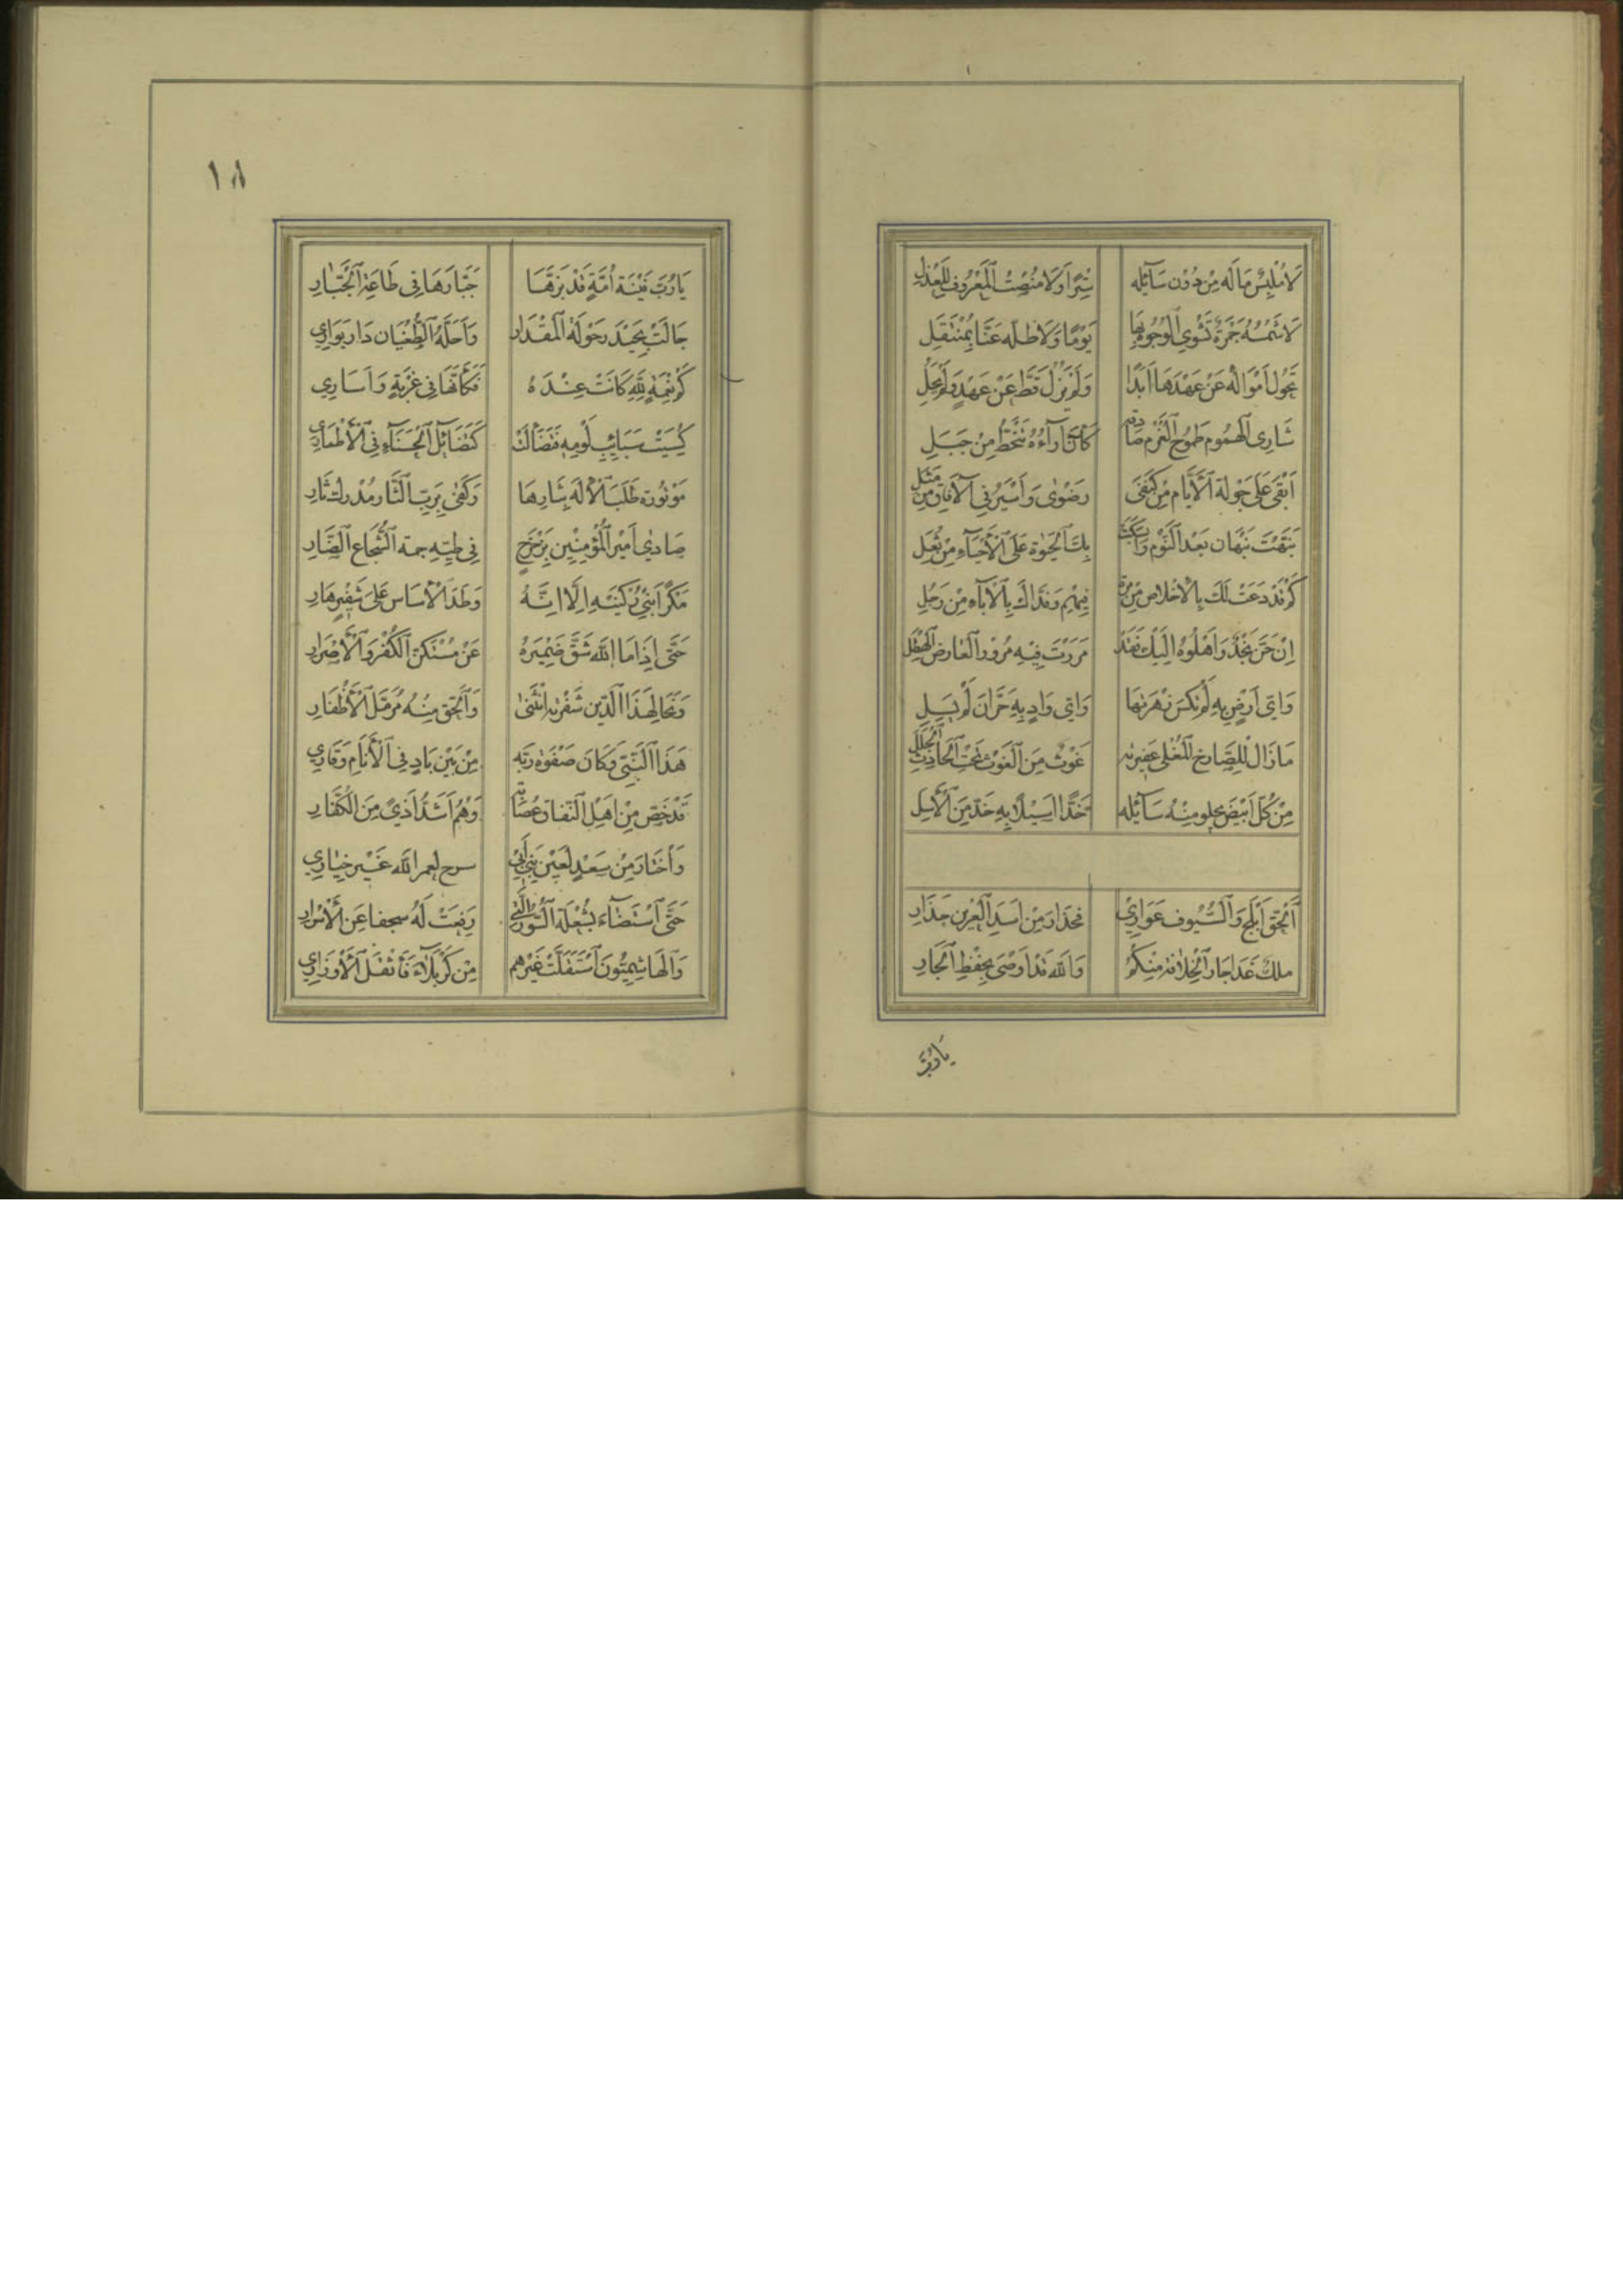 لَا مُلْبِسٌ مَالَه مِنْ دُوْن سَآئِله سِتْرًا وَلَا مُنْصِتُ الْمَعْرُوفِ لِلْعَذَلِ
لَا شَمْسُهُ جَمْرَةٌ تَشْوِي الْوُجُوْه بِهَا يَوْمًا وَلَا ظِلّه عَنَّا بِمُنْتَقِل
تَحُول اَمْوَالُه عَنْ عَهْدِهَا اَبَدًا وَلَمْ يَزُلْ قَطُّ عَنْ عَهْدٍ وَلَمْ يَحُلِ
سَارِى الْهُمُوم طَمُوح الْعَزْم صَادِقه كَاَنَّ آرَآءُهُ تَنْحَطُّ مِنْ جَبَلِ
اَبْقَى عَلَى جَوْلَة الْاَيَّام مِنْ كَنَفَى رَضْوٰى وَاَسْيَرُ فِى الْآفَاق مِنْ مَثَل
نَبَّهْتَ نَبْهَان بَعْدَ النَّوْم وَانْسَكَبَتْ بِكَ الْحَيٰوة عَلَى الْاَحْيَآءِ مِنْ ثُعَل
كَمْ قَدْ دَعَتْ لَكَ بِالْاِخْلَاص مِنْ مَرَةٍ فِيْهِمْ وَفَدَّاكَ بِالْآبَآءِ مِنْ رَجُلِ
اِنْ حَنَّ نَجْدٌ وَاَهْلُوْهُ اِلَيْكَ فَقَدْ مَرَرْتَ فِيْهِ مُرُوْرَ الْعَارِض الْهَطِل
وَاَىّ اَرْضٍ بِهِ لَمْ تُكْسَ زَهْرَتهَا وَاَىّ وَادٍ بِهِ حَرَّان لَمْ يَسِلِ
مَا زَال لِلصَّارِخ الْمُعْلِى عَقِيْرته غَوْث مِنَ الْغَوْث تَحْت الْحَادِث الْجَلَلِ
مِنْ كُلّ اَبْيَض يَجْلو مِنْهُ سَآئِله خَدًّا اَسِيْلًا بِهِ خَدّ مِنَ الْاَسَل
اَلْحَقّ اَبْلَجُ وَالسُّيُوف عَوَارِيْ فَحَذَار مِنْ اَسَدِ الْعَرِيْن حَذَار
ملك غَدَا جَار الْخِلَافة مِنْكُمْ وَالله قَدْ اَوْصَى بِحِفْظِ الْجَارِ
يَا رُبَّ
١٨
يَا رُبَّ فِتْنَة اُمَّةٍ قَدْ بَزَّهَا جَبَّارهَا فِى طَاعَةِ الْجَبَّارِ
جَالَتْ بِحَيْدَر جَوْلَة الْمِقْدَار وَاَحَلَّهُ الطُّغْيَان دَار بَوَارِي
كَمْ نِعْمَةٍ لِلهِ كَانَتْ عِنْدَهُ فَكَاَنَّهَا فِى غُرْبَةٍ وَاَسَارِي
كُسِيَتْ سَبَائِب لُومه فَتَضَآلَتْ كَتَضَآئل الْحَسْنَآءِ فِى الْاَطْمَارِ
مَوْتُوْرة طَلَبَ الْاِلَه بِثَارِهَا وَكَفٰى بِرَبّ الثَّار مُدْرِك ثَارِ
صَادٰى اَمِيْر الْمُؤْمِنِيْن بِزِبْرِجٍ فِى طَيِّهِ حمة الشُّجَاع الضَّار
مَكْرًا بَنٰى رُكْنَيْهِ اِلَّا اَنَّهُ وَطَدَ الْاَسَاس عَلَى شَفِيْرٍ هَارِ
حَتَّى اِذَا مَا الله شَقَّ ضَمِيْرهُ عَنْ مُسْتَكِنّ الْكُفْر وَالْاِصْرَارِ
وَنَحَا لِهَذَا الدِّيْن شَفْرته انْثَنٰى وَالْحَقّ مِنْهُ مُرَمَّل الْاَظْفَارِ
هَذَا النَّبِيّ وَكَان صَفْوَة رَبّه مِنْ بَيْن بَادٍ فِى الْاَنَامِ وَقَارِي
قَدْ خَصّ مِنْ اَهْلِ النِّفَاق عُصَابة وَهُمْ اَشَدُّ اَذىً مِنَ الْكُفَّار
وَاخْتَارَ مِنْ سَعْدٍ لَعِيْن بَنِىْ اَبِىْ سرح لعمر الله غَيْر خِيَارِي
حَتَّى اسْتَضَآء بِشُعْلَة السُّوَر الَّتِى رَفَعَتْ لَهُ سجفا عَنِ الْاَسْرَارِ
وَالْهَاشِمِيُّونَ اسْتَقَلَّتْ غَيْرهم مِنْ كَرْبَلَآء بِاَثْقَل الْاَوْزَارِي